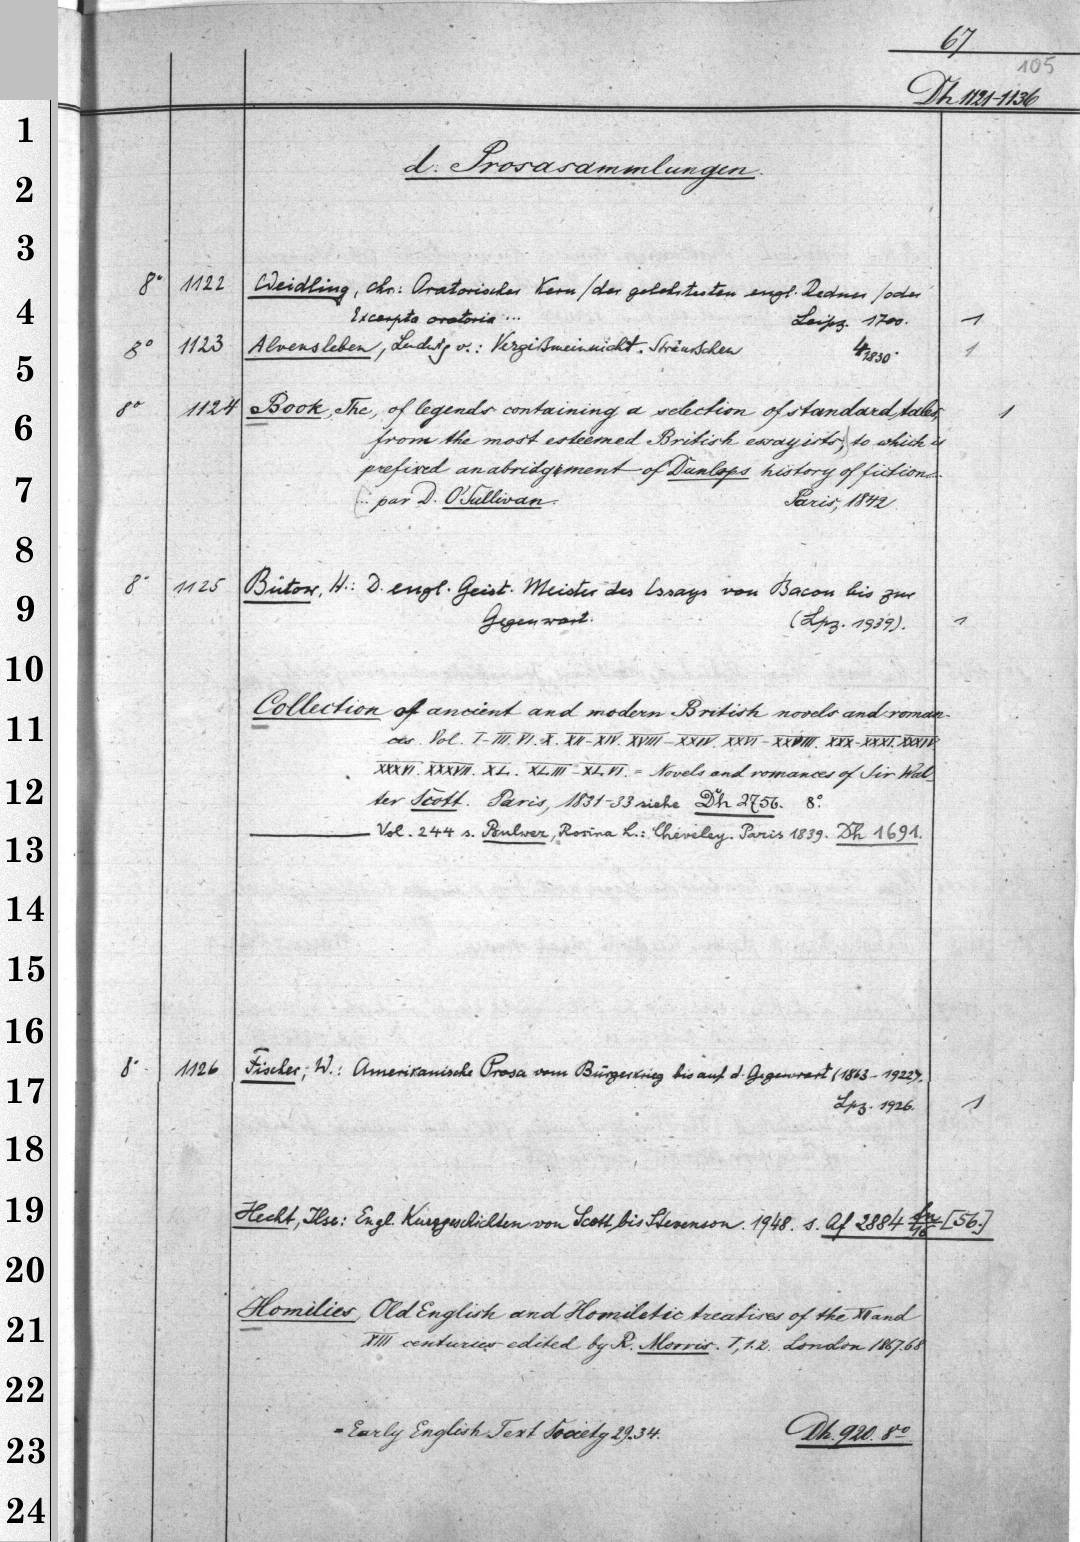 67
105
Dh 1121-1136
1
d. Prosasammlungen.
2
3
8° 1122 Weidling, Chr.: Oratorischer Kern / der gelehrtesten engl. Redner / oder
4
Excerpta oratoria ... Leipz. 1700. 1
8° 1123 Alvensleben, Ludwig v.: Vergißmeinnicht-Sträusschen 1830. 1
5
8° 1124 Book, The, of legends containing a selection of standard tales, 1
6
from the most esteemed British essayists, to which is
prefixed an abridgement of Dunlops history of fiction
7
... par D. O'Sullivan. Paris, 1842
8
8° 1125 Bütow, H.: D. engl. Geist. Meister des Essays von Bacon bis zur
9
Gegenwart. (Lpz. 1939). 1
10
Collection of ancient and modern British novels and roman-
11
ces. Vol. I-III. VI. X. XII-XIV. XVIII-XXIV. XXVI-XXVIII. XXX-XXXI. XXXIV
XXXVI. XXXVII. XL. XLIII-XLVI. = Novels and romances of Sir Wal-
12
ter Scott. Paris, 1831-33 siehe Dh 2756. 8°.
Vol. 244 s. Bulwer, Rosina L.: Cheveley. Paris 1839. Dh 1691.
13
14
15
16
8° 1126 Fischer, W.: Amerikanische Prosa vom Bürgerkrieg bis auf d. Gegenwart (1863-1922).
17
Lpz. 1926. 1
18
19
Hecht, Ilse: Engl. Kurzgeschichten von Scott bis Stevenson. 1948. s. Af 2884 [56.]
20
Homilies, Old English and Homiletic treatises of the XII and
21
XIII centuries edited by R. Morris. I, 1.2. London 1867.68
22
= Early English Text Society 29.34. Dh. 920. 8°
23
24